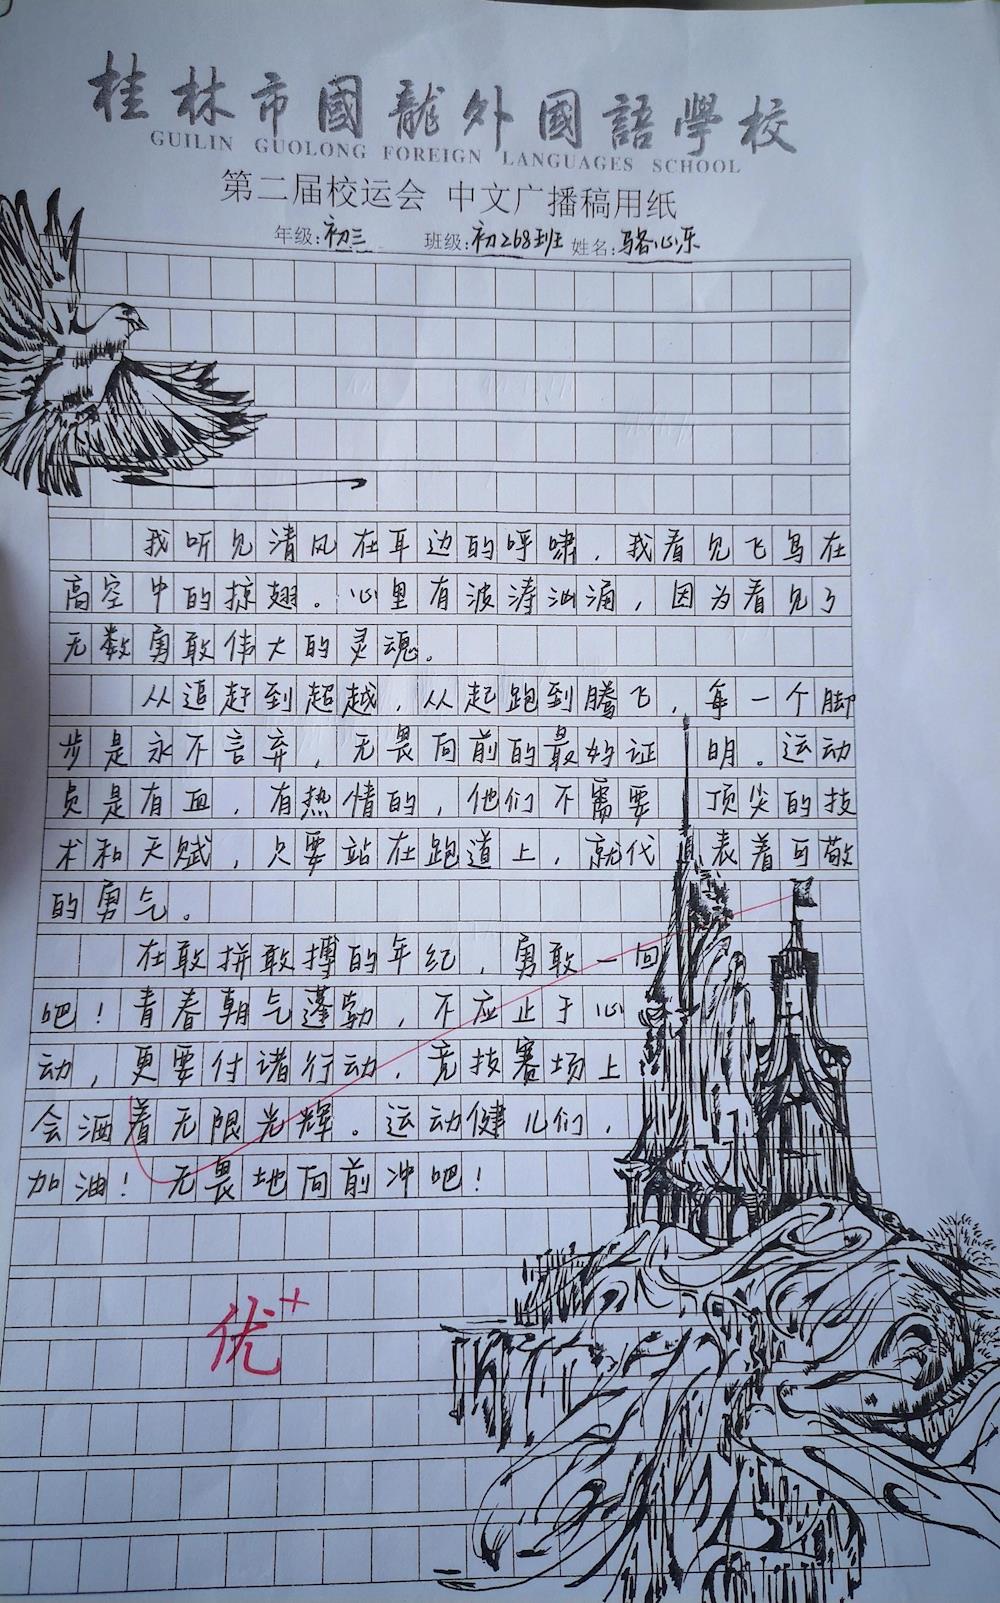 桂林市國龍外國語學校
GUILIN GUOLONG FOREIGN LANGUAGES SCHOOL
第二届校运会 中文广播稿用纸
年级:初三 班级:初268班 姓名:骆心乐
我听见清风在耳边的呼啸，我看见飞鸟在
高空中的掠翅。心里有波涛汹涌，因为看见了
无数勇敢伟大的灵魂。
从追赶到超越，从起跑到腾飞，每一个脚
步是永不言弃，无畏向前的最好证明。运动
员是有血，有热情的，他们不需要顶尖的技
术和天赋，只要站在跑道上，就代表着可敬
的勇气。
在敢拼敢搏的年纪，勇敢一回
吧！青春朝气蓬勃，不应止于心
动，更要付诸行动，竞技赛场上
会洒着无限光辉。运动健儿们，
加油！无畏地向前冲吧！
优+